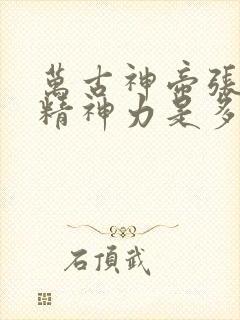 萬古神帝張
精神力是多
石頂武